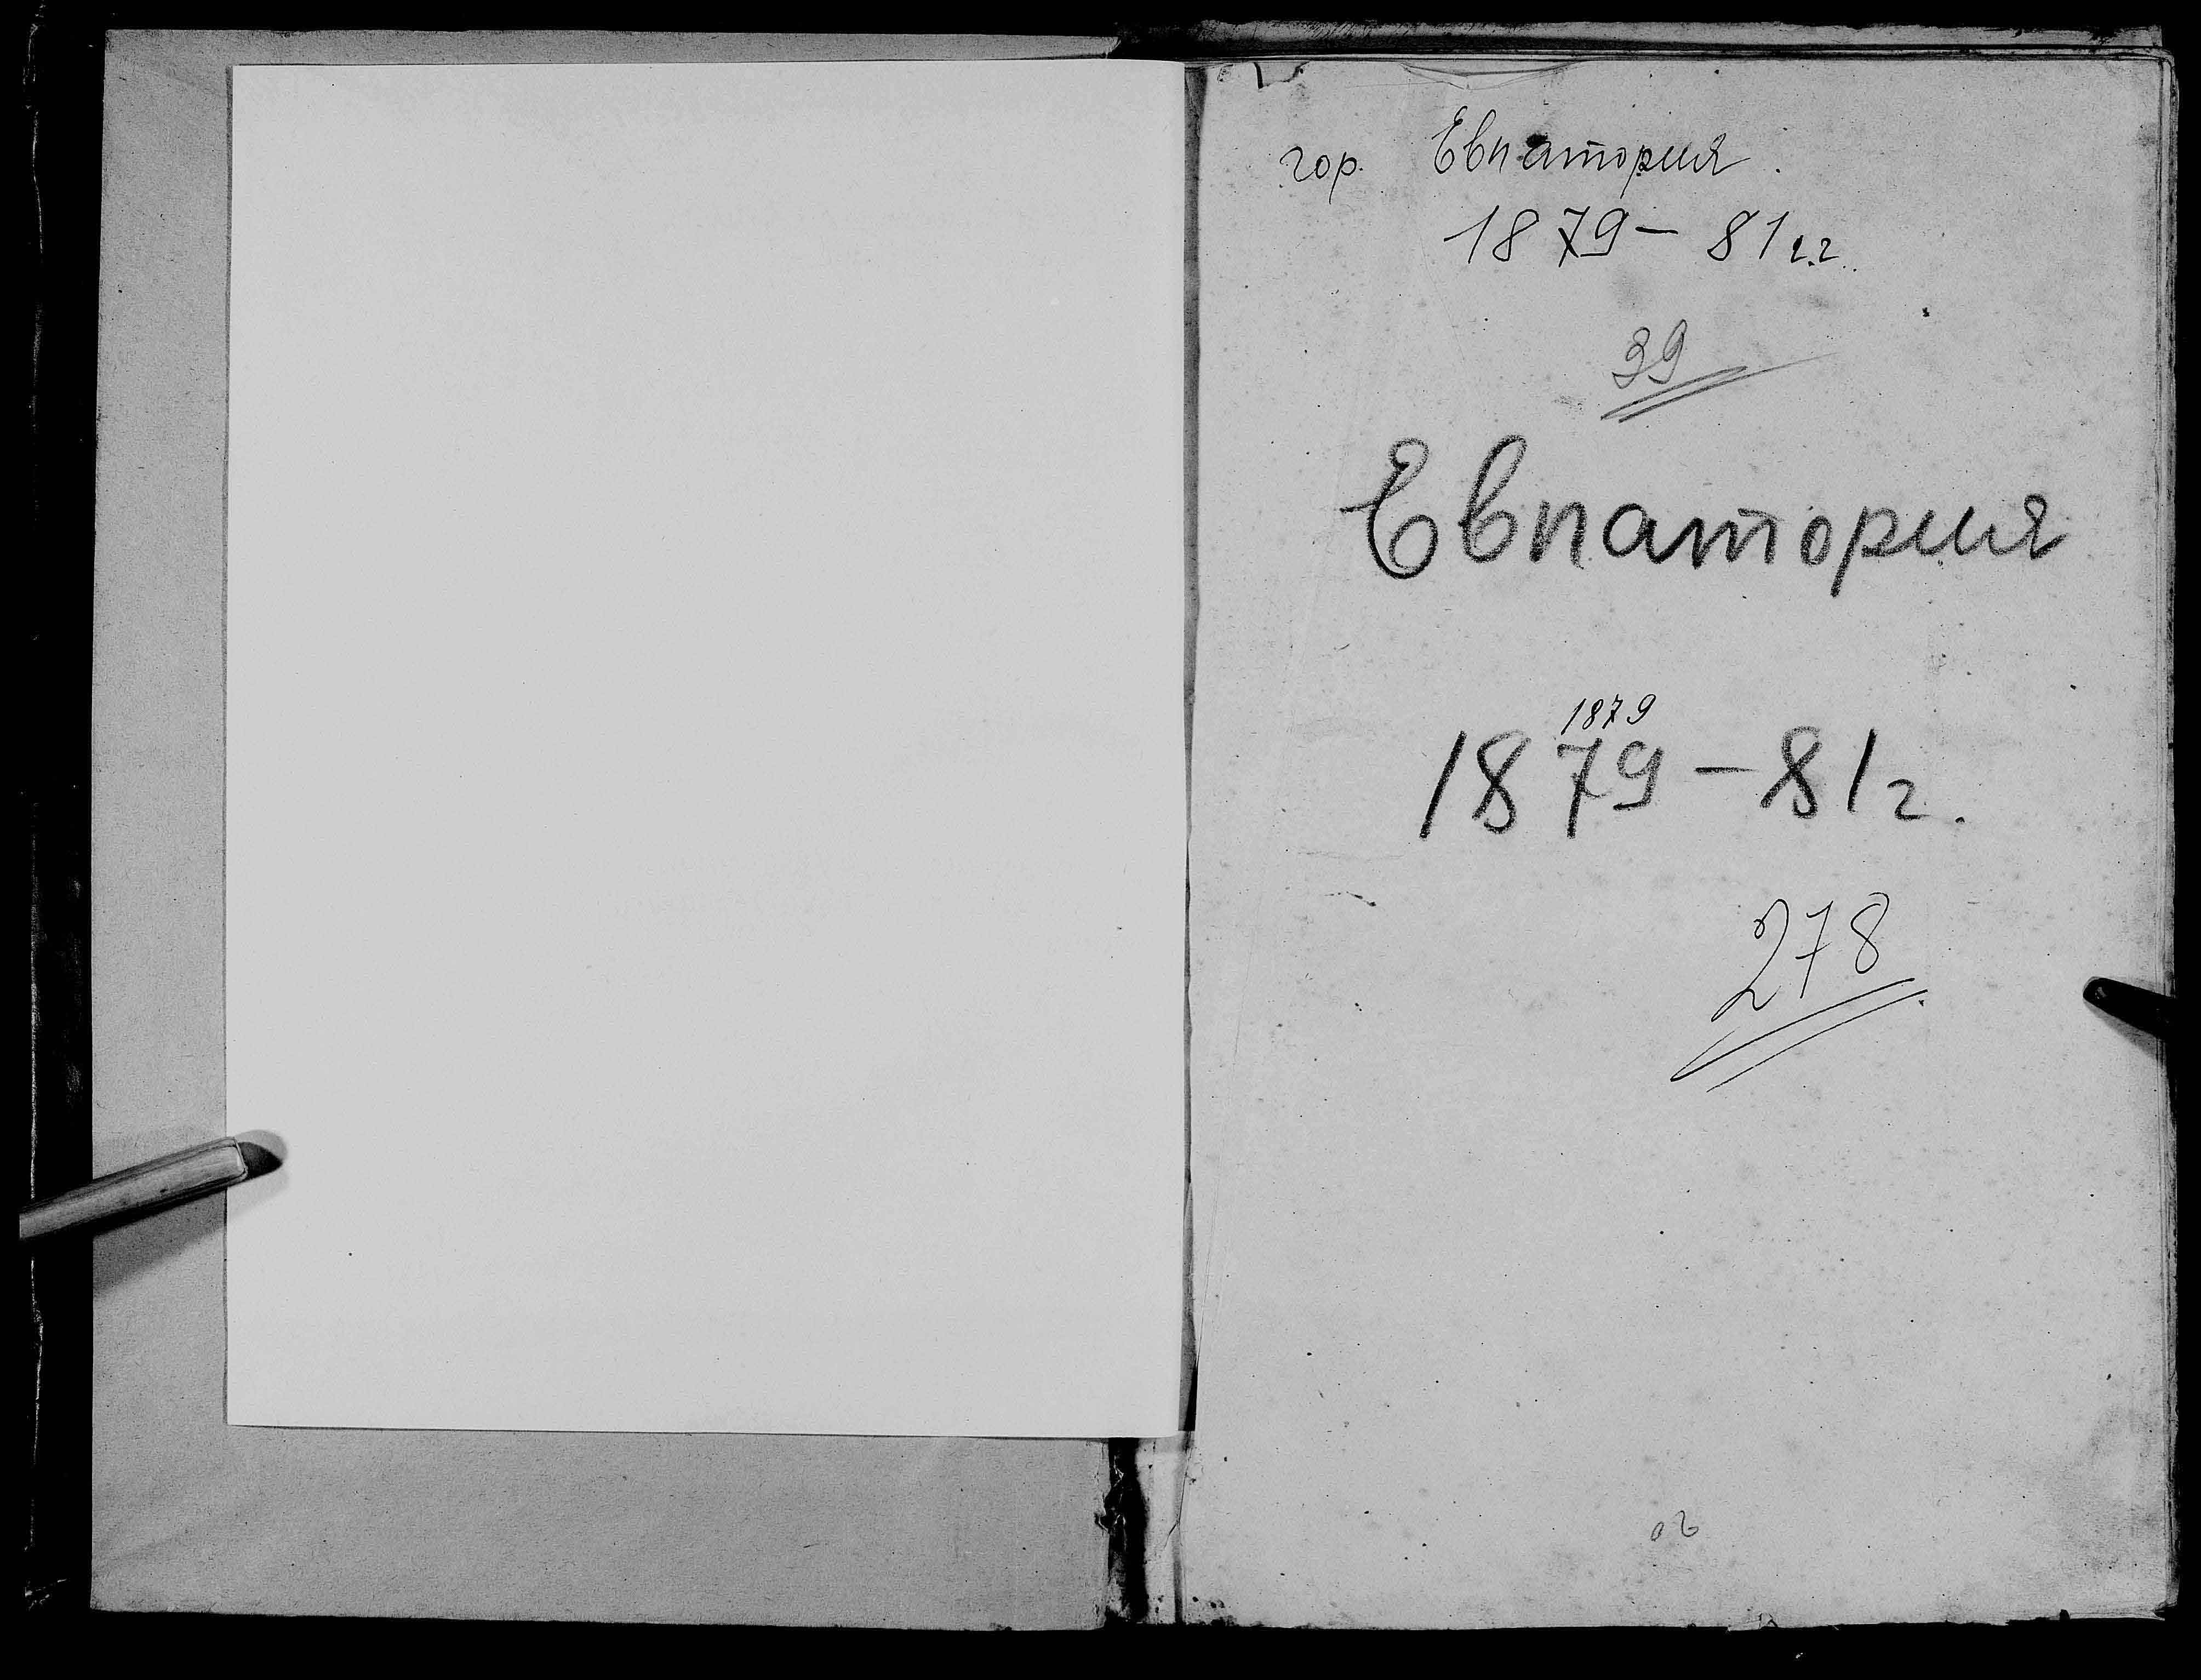 гор. Евпатория.
1879 – 81 г.г.
39
Евпатория
1879
1879 – 81 г.
278